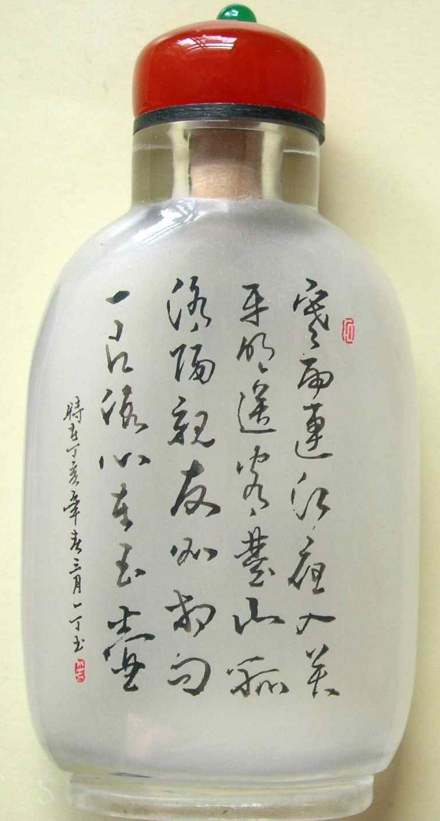 寒雨連江夜入吴
平明送客楚山孤
洛陽親友如相问
一片冰心在玉壺
時在丁亥年春三月一丁书